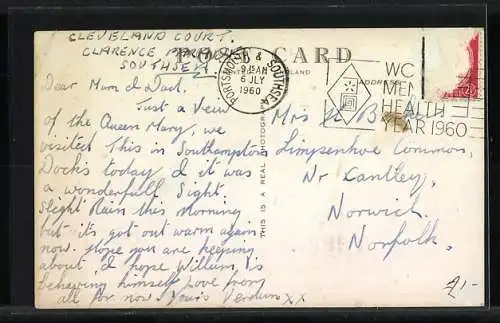 CLEVELAND COURT.
CLARENCE PARADE
SOUTHSEA
POST CARD
ADDRESS
PORTSMOUTH & SOUTHSEA
9.15AM
6 JLY
1960
WO
MEN
HEALTH
YEAR 1960
THIS IS A REAL PHOTOGRAPH
Dear Mum & Dad.
Just a view
of the Queen Mary, we
visited this in Southampton
Docks today, & it was
a wonderfull Sight.
Slight Rain this Morning
but its got out warm again
now. Hope you are keeping
about, & hope William, is
behaving himself Love from
all for now. Yours XX
Mrs
Limpenhoe Common,
Nr Cantley,
Norwich,
Norfolk.
£1-